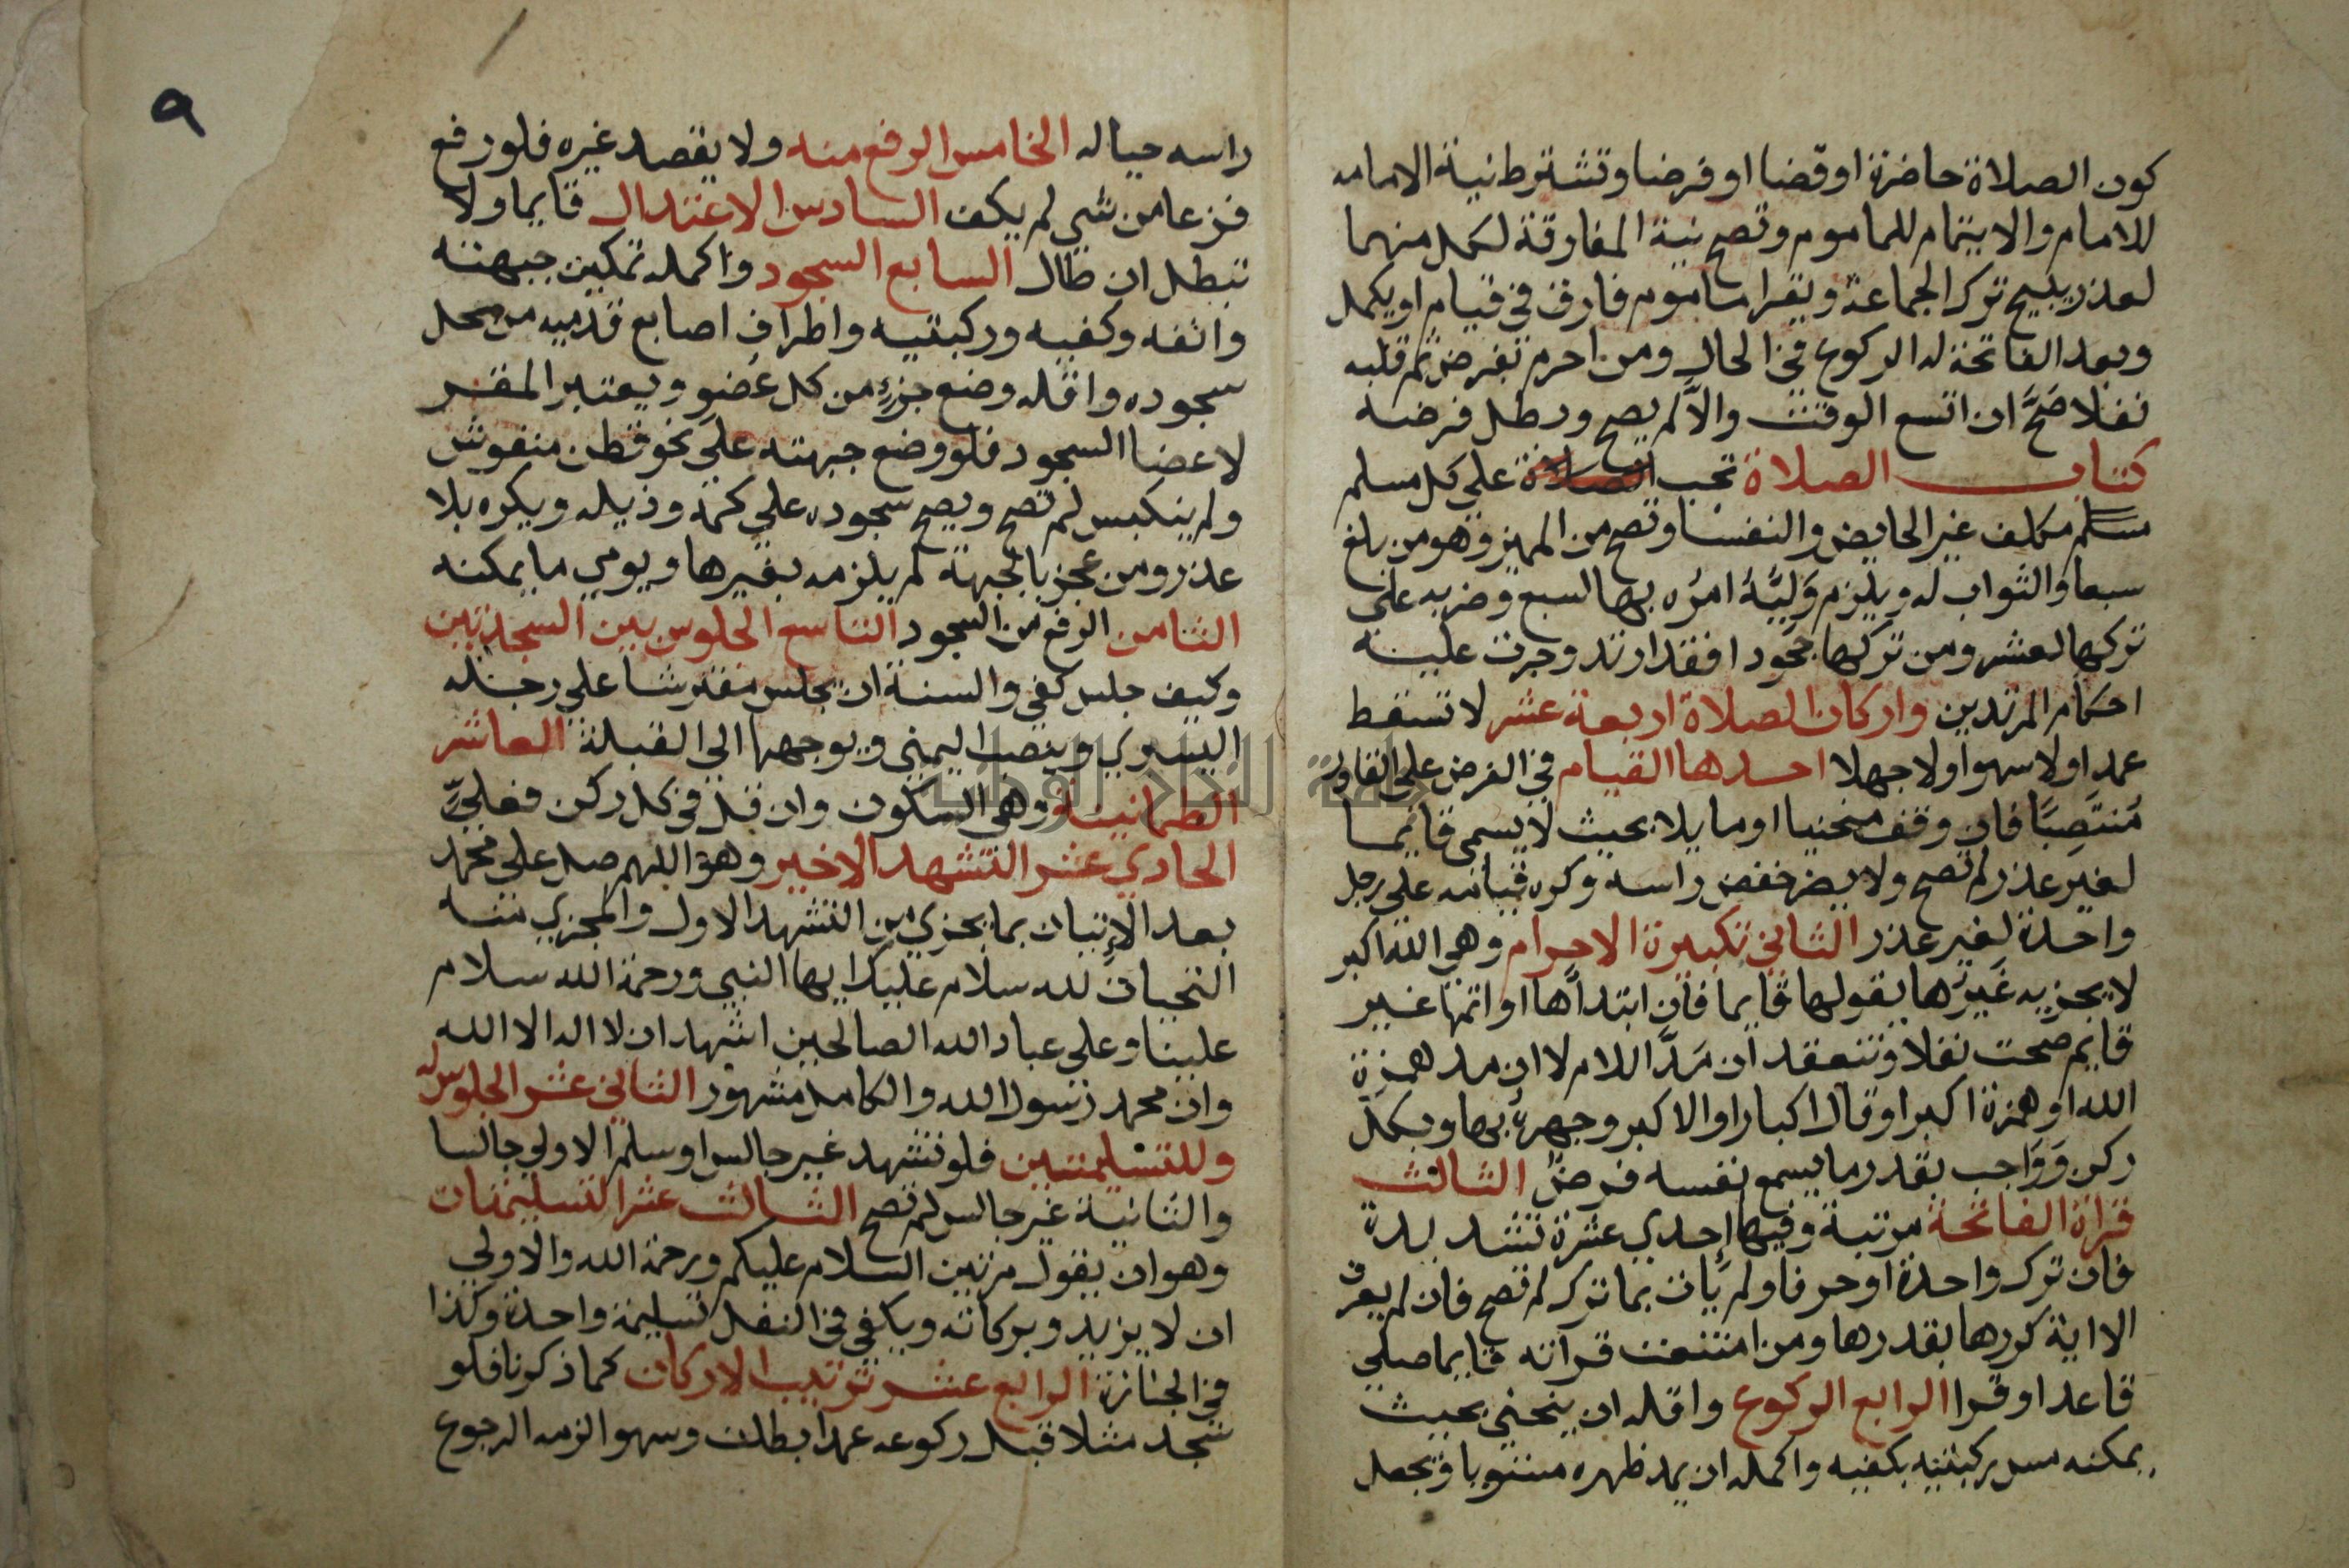 كون الصلاة حاضرة او قضا او فرضا وتشترط نية الامامه
للامام والايتمام للماموم وتصح نية المفارقة لكل منهما
لعذر يبيح ترك الجماعة ويقرا ماموم فارق في قيام او يكمل
وبعد الفاتحة له الركوع في الحال ومن احرم بفرض ثم قلبه
نفلا صَحَّ ان اتسع الوقت والَّا لم يصح وبطل فرضه
كتاب الصلاة تجب الصلاة على كل مسلم
مسلم مكلف غير الحايض والنفسا وتصح من المميز وهو من بلغ
سبعا والثواب له ويلزم وَليَّهُ امرُه بها لسبع وضربه على
تركها لعشر ومن تركها جحودا فقد ارتد وجرت عليه
احكام المرتدين واركان الصلاة اربعة عشر لا تسقط
عمدا ولا سهوا ولا جهلا احدها القيام في الفرض على القادر
مُنتَصِبًا فان وقف منحنيا او مايلا بحيث لا يسمى قايما
لغير عذر لم تصح ولا يضر خفض راسه وكره قيامه على رجل
واحدة لغير عذر الثاني تكبيرة الاحرام وهي الله اكبر
لا يجزيه غَيرُها يقولها قايما فان ابتداها او اتمها غير
قايم صحت نفلا وتنعقد ان مَدَّ اللام لا ان مد همزة
الله او همزة اكبر او قال اكبار او الاكبر وجهره بها وبكل
ركن وَوَاجب بقدر ما يسمع نفسه فرضٌ الثالث
قراة الفاتحة مرتبة وفيها إحدي عشرة تشديدة
فان ترك واحدة او حرفا ولم يَات بما ترك لم تصح فان لم يعرف
الا اية كررها بقدرها ومن امتنعت قراته قايما صلي
قاعدا وقرا الرابع الركوع واقله ان ينحني بحيث
يمكنه مس ركبتيه بكفيه واكمله ان يمد ظهره مستويا ويجعل
٩
راسه حياله الخامس الرفع منه ولا يقصد غيره فلو رفع
فزعا من شي لم يكف السادس الاعتدال قايما ولا
تبطل ان طال السابع السجود واكمله تمكين جبهته
وانفه وكفيه وركبتيه واطراف اصابع قدميه من محل
سجوده واقله وضع جزءٍ من كل عضو ويعتبر المقر
لاعضا السجود فلو وضع جبهته على نحو قطن منفوش
ولم ينكبس لم تصح ويصح سجوده على كمه وذيله ويكره بلا
عذر ومن عجز بالجبهة لم يلزمه بغيرها ويومي ما يمكنه
الثامن الرفع من السجود التاسع الجلوس بين السجدتين
وكيف جلس كفي والسنة ان يجلس مفترشا على رجله
اليسري وينصب اليمني ويوجهها الي القبلة العاشر
الطمانينة وهي السكون وان قل في كل ركن فعليٍّ
الحادي عشر التشهد الاخير وهو اللهم صل على محمد
بعد الاتيان بما يجزي من التشهد الاول والمجزي منه
التحيات لله سلام عليك ايها النبي ورحمة الله سلام
علينا وعلى عباد الله الصالحين اشهد ان لا اله الا الله
وان محمد رسول الله والكامل مشهور الثاني عشر الجلوس له
وللتسليمتين فلو تشهد غير جالس او سلم الاولي جالسا
والثانية غير جالس لم تصح الثالث عشر التسليمتان
وهو ان يقول مرتين السلام عليكم ورحمة الله والاولي
ان لا يزيد وبركاته ويكفي في النفل تسليمة واحدة وكذا
في الجنازة الرابع عشر ترتيب الاركان كما ذكرنا فلو
سجد مثلا قبل ركوعه عمدا بطلت وسهوا لزمه الرجوع